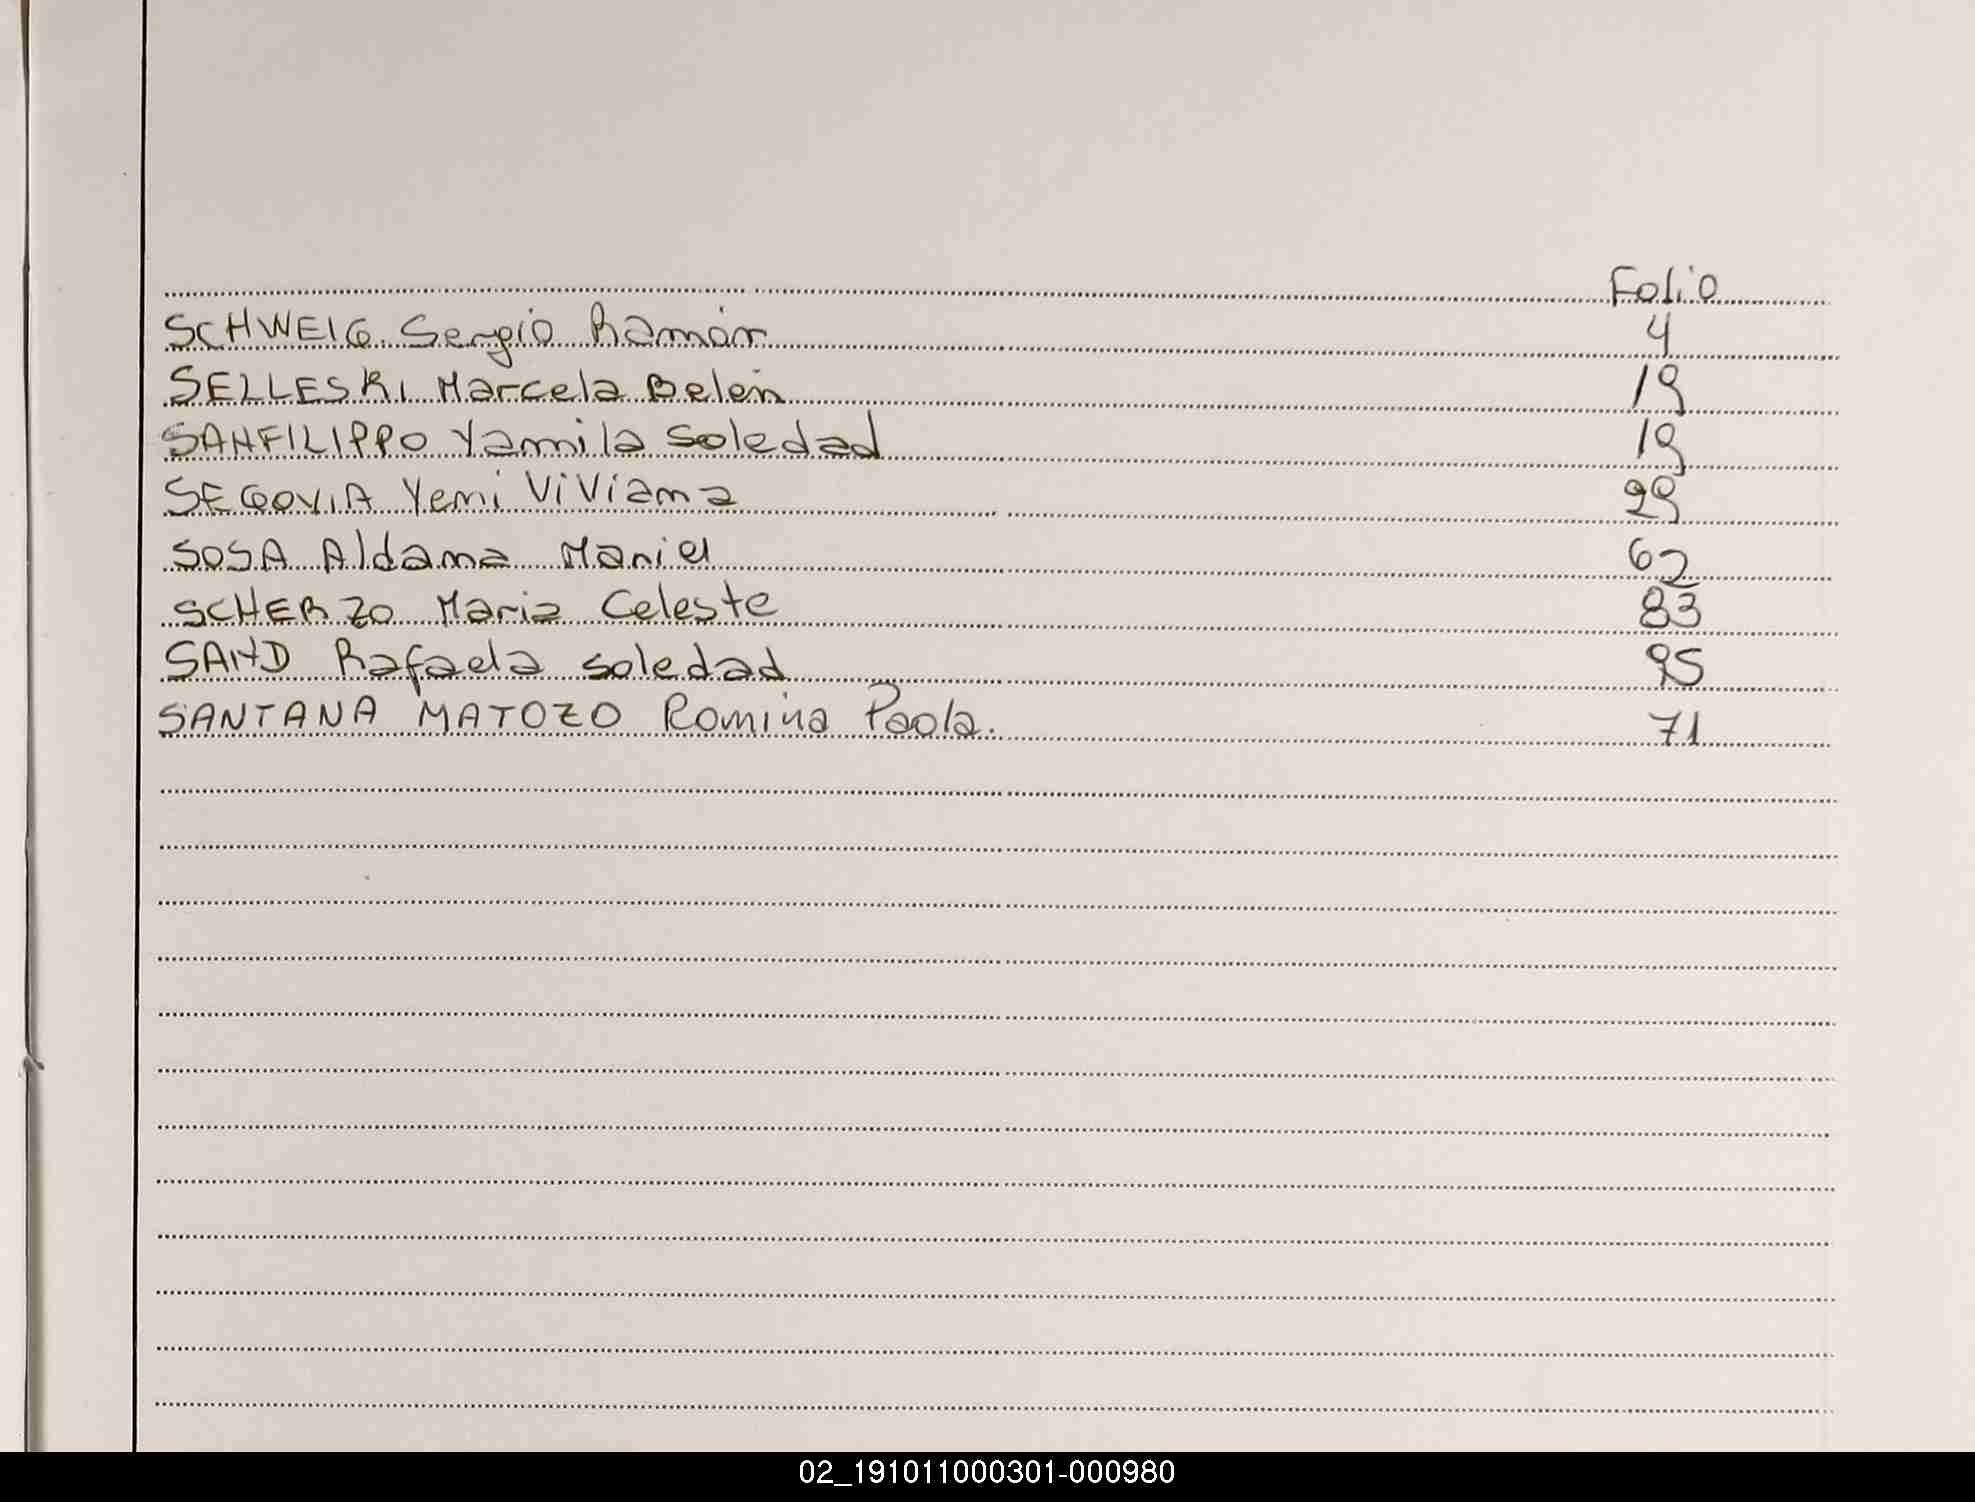 Folio
SCHWEIG Sergio Ramón 4
SELLESKI Marcela Belén 19
SANFILIPPO Yamila Soledad 19
SEGOVIA Yeni Viviana 29
SOSA Aldana Mariel 62
SCHERZO Maria Celeste 83
SAND Rafaela Soledad 95
SANTANA MATOZO Romina Paola. 71
02_191011000301-000980